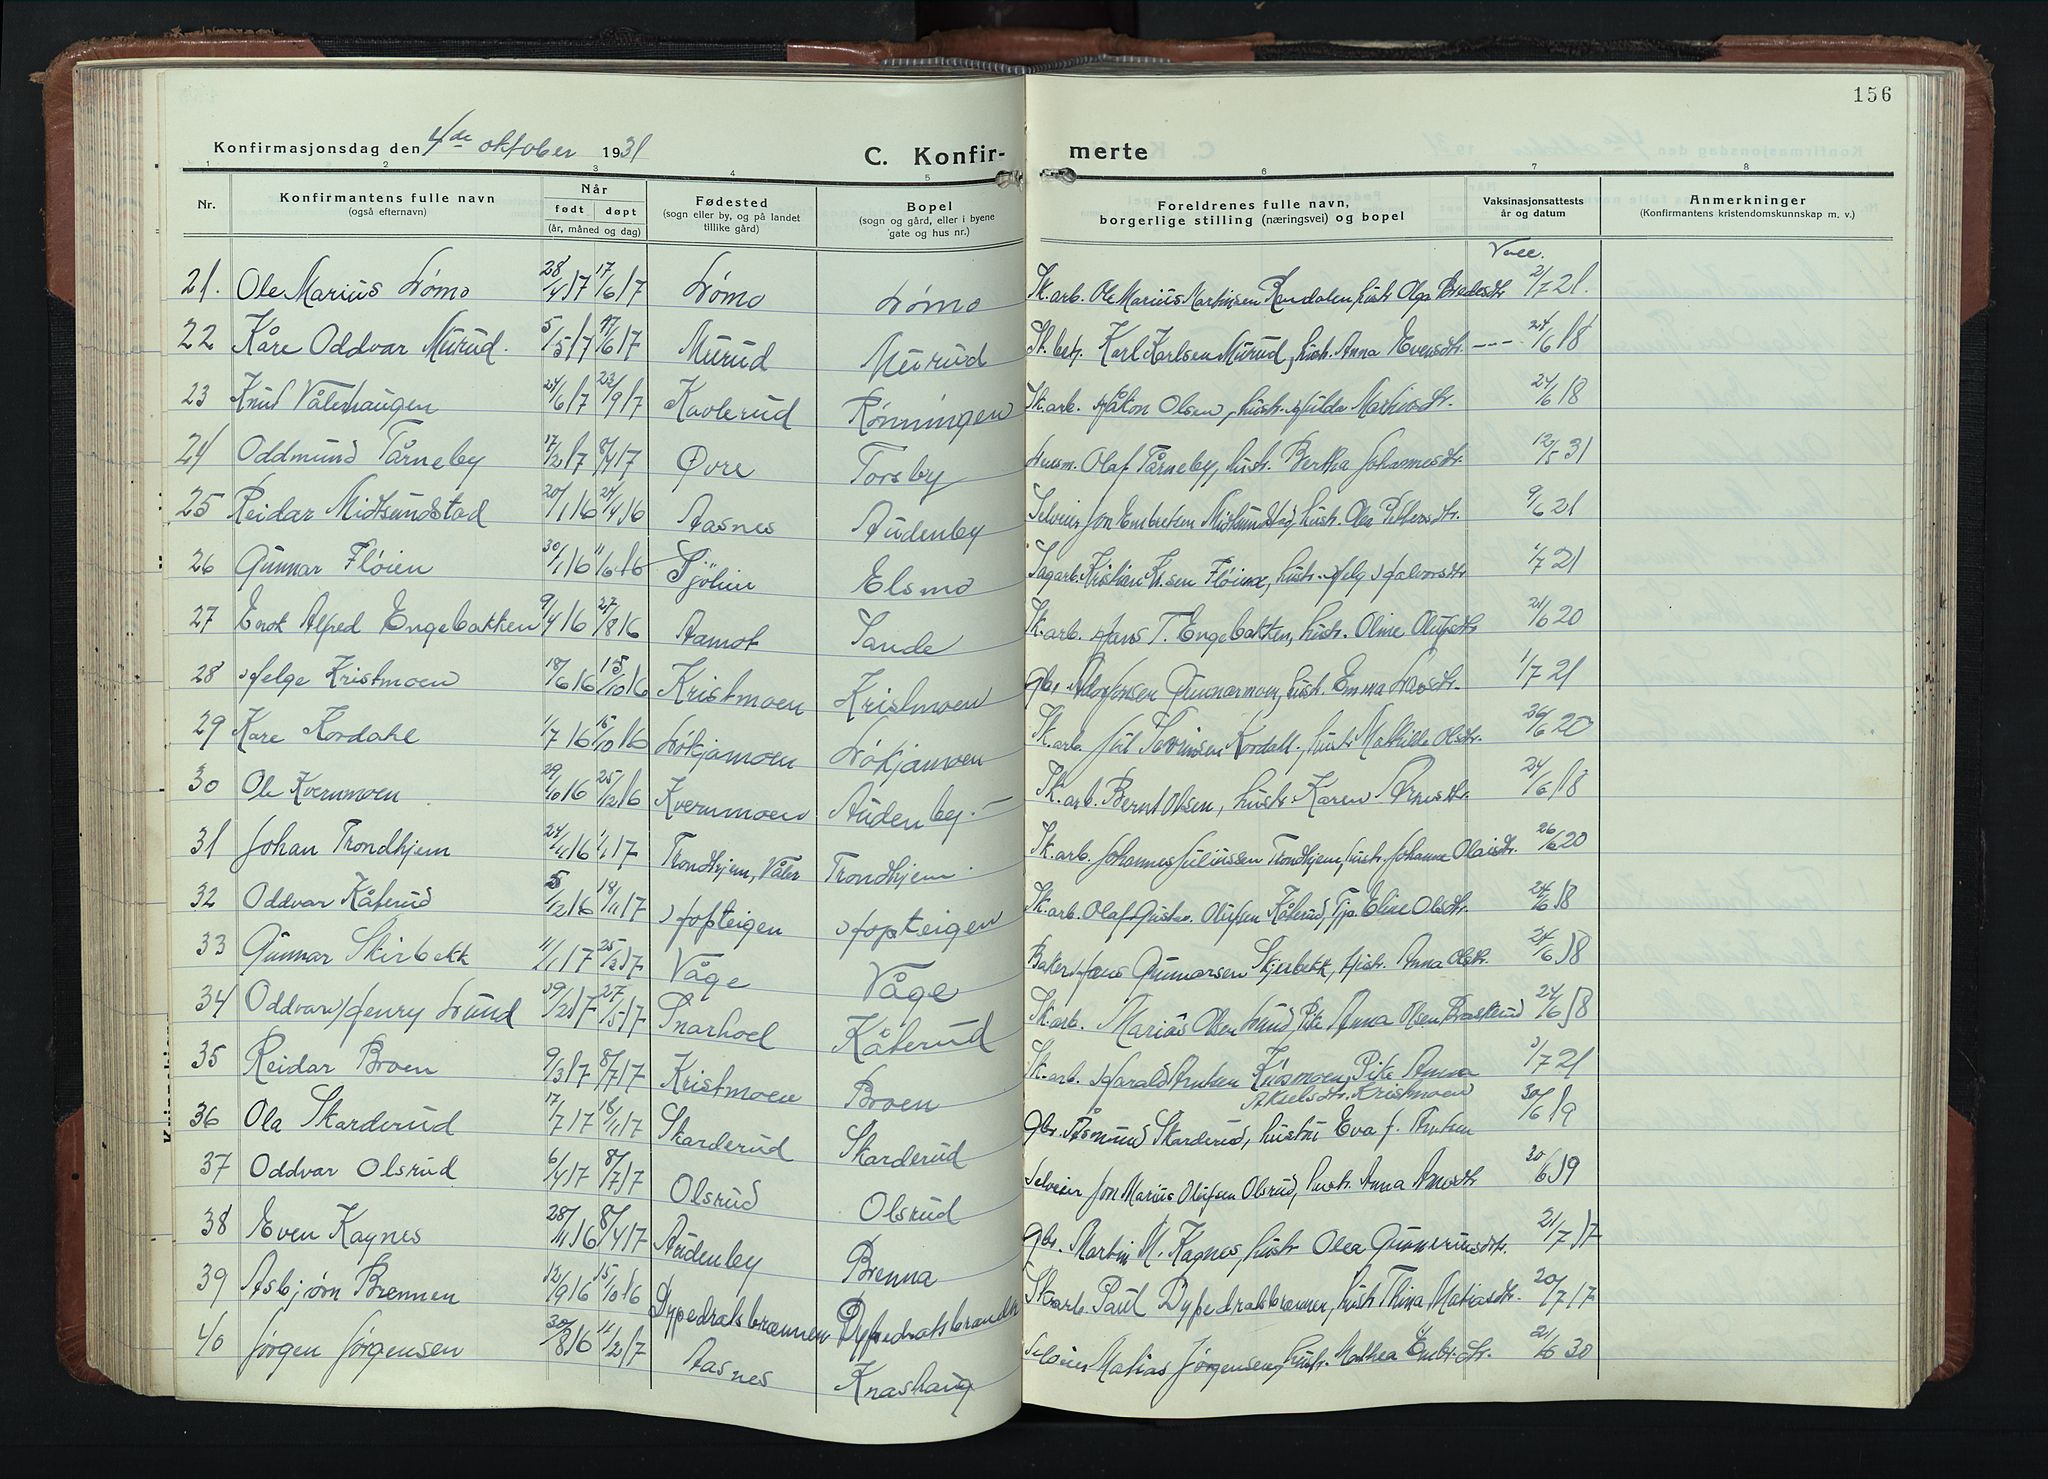 156
Konfirmasjonsdag den 4de oktober 1931
C. Konfir- merte
1 2 3 4 5 6 7 8
Nr. Konfirmantens fulle navn (også efternavn) Når født døpt (år, måned og dag) Fødested (sogn eller by, og på landet tillike gård) Bopel (sogn og gård, eller i byene gate og hus nr.) Foreldrenes fulle navn, borgerlige stilling (næringsvei) og bopel Vaksinasjonsattests år og datum Anmerkninger (Konfirmantens kristendomskunnskap m. v.)
21. Ole Marius Lømo 28/4 17 17/6 17 Lømo Lømo Sk.arb. Ole Marius Martinsen hustr Olga 2/7 21.
22 Kåre Oddvar Murud. 5/5 17 17/6 17 Murud Murud Karl Karlsen Murud, hustr. Anna Evensdtr. --- 24/6 18
23 Knut Vålerhaugen 24/6 17 23/9 17 Kavlerud Rønningen Sk.arb. Håkon Olsen, hustr. Hulda 24/6 18
24 Oddmund Tårneby 17/2 17 8/4 17 Øvre Torsby Olaf Tårneby, hustr. Bertha Johannesdtr. 12/5 31
25 Reidar Midtsundstad 20/1 16 24/4 16 Aasnes Audenby Selveier Jon Embretsen Midtsundstad, hustr. 9/6 21
26 Gunnar Fløien 30/1 16 11/6 16 Elsmo Sagarb. Kristian hustr. Helg Halvorsdtr 1/7 21
27 Erik Alfred Engebakken 9/4 16 27/8 16 Aamot Sande Sk.arb. Hans T. Engebakken, hustr. Oline Olufsdtr 21/6 20
28 Helge Kristmoen 18/6 16 15/10 16 Kristmoen Kristmoen Gbr. Gunnarmoen, hust. Emma 1/7 21
29 Kåre Kordahl 1/7 16 15/10 16 Løkjamoen Løkjamoen Sk.arb. hustr Mathilde Olsdtr. 26/6 20
30 Ole Kvernmoen 29/10 16 25/12 16 Kvernmoen Audenby. Sk.arb. Bernt Olsen, hustr. Karen Arnesdtr. 24/6 18
31 Johan Trondhjem 24/4 16 1/1 17 Trondhjem, Våler Trondhjem Sk.arb. Johannes Juliussen Trondhjem, hustr. Johanne Olaisdtr. 26/6 20
32 Oddvar Kåterud 5/12 16 18/11 17 Hopteigen Hopteigen Sk.arb. Olaf Gustav Olufsen Kåterud, Tjp. Eline Olsdtr. 24/6 18
33 Gunnar Skirbekk 11/1 17 25/3 17 Våge Våge Baker Hans Gunnarsen Skjerbekk, Hustr. Anna Olsdtr. 24/6 18
34 Oddvar Henry Lund 19/2 17 27/5 17 Snarhoel Kåterud Sk.arb. Marius Olsen Lund, Pike Anna Olsen, Braskerud 24/6 18
35 Reidar Broen 9/3 17 8/7 17 Kristmoen Broen Sk.arb. Harald Arntsen Pike Anna 1/7 21
Akselsdtr. Kristmoen
36 Ola Skarderud 17/7 17 18/11 17 Skarderud Skarderud Gbr. Åsmund Skarderud, hustru Eva f. Arntsen 30/6 19
37 Oddvar Olsrud 6/4 17 8/7 17 Olsrud Olsrud Selveier Jon Marius Olufsen Olsrud, hustr. Anna Arnesdtr 30/6 19
38 Even Kaynes 28/11 16 8/4 17 Audenby Brenna Gbr. Martin M. Kagnes, hustr Olea Gunneriusdtr. 21/7 17
39 Asbjørn Brennen 12/9 16 15/10 16 Dypedralsbrænnen Sk.arb. Paul Dypedralsbrænnen, hustr Thina Matiasdtr. 20/7 17
40 Jørgen Jørgensen 30/8 16 11/2 17 Aasnes Knashaug Selveier Matias Jørgensen, hustr. Mathea Embr.dtr. 21/6 30